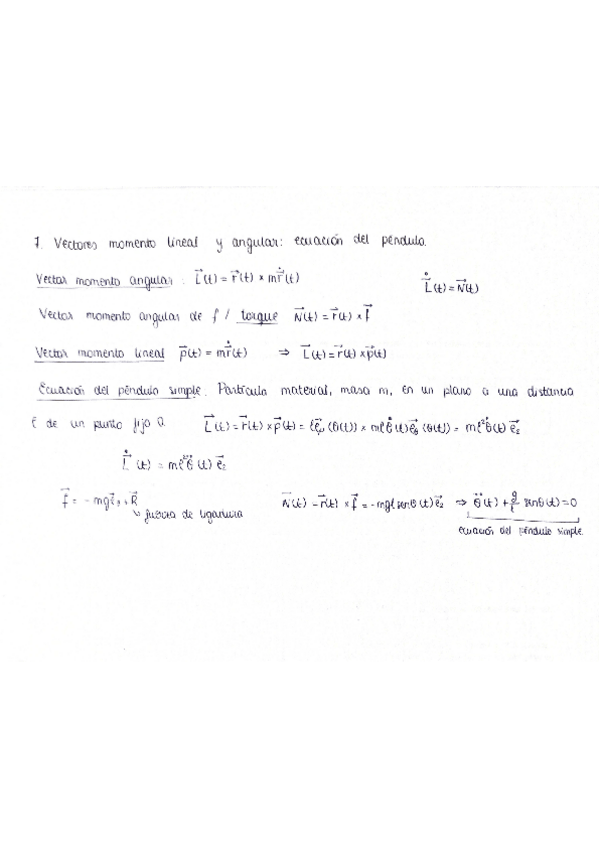 7. Vectores momento lineal y angular: ecuación del péndulo.
Vector momento angular: L⃗(t) = r⃗(t) × m r⃗̇(t)    L⃗̇(t) = N⃗(t)
Vector momento angular de f / torque N⃗(t) = r⃗(t) × f⃗
Vector momento lineal p⃗(t) = m r⃗̇(t) ⇒ L⃗(t) = r⃗(t) × p⃗(t)
Ecuación del péndulo simple. Partícula material, masa m, en un plano a una distancia
ℓ de un punto fijo O. L⃗(t) = r⃗(t) × p⃗(t) = ℓ e⃗ᵣ(θ(t)) × mℓ θ̇(t) e⃗_θ(θ(t)) = mℓ² θ̇(t) e⃗_z
L⃗̇(t) = mℓ² θ̈(t) e⃗_z
f⃗ = -mg R⃗    N⃗(t) = r⃗(t) × f⃗ = -mgℓ sen θ(t) e⃗_z ⇒ θ̈(t) + g/ℓ sen θ(t) = 0
↳ fuerza de ligadura    ecuación del péndulo simple.